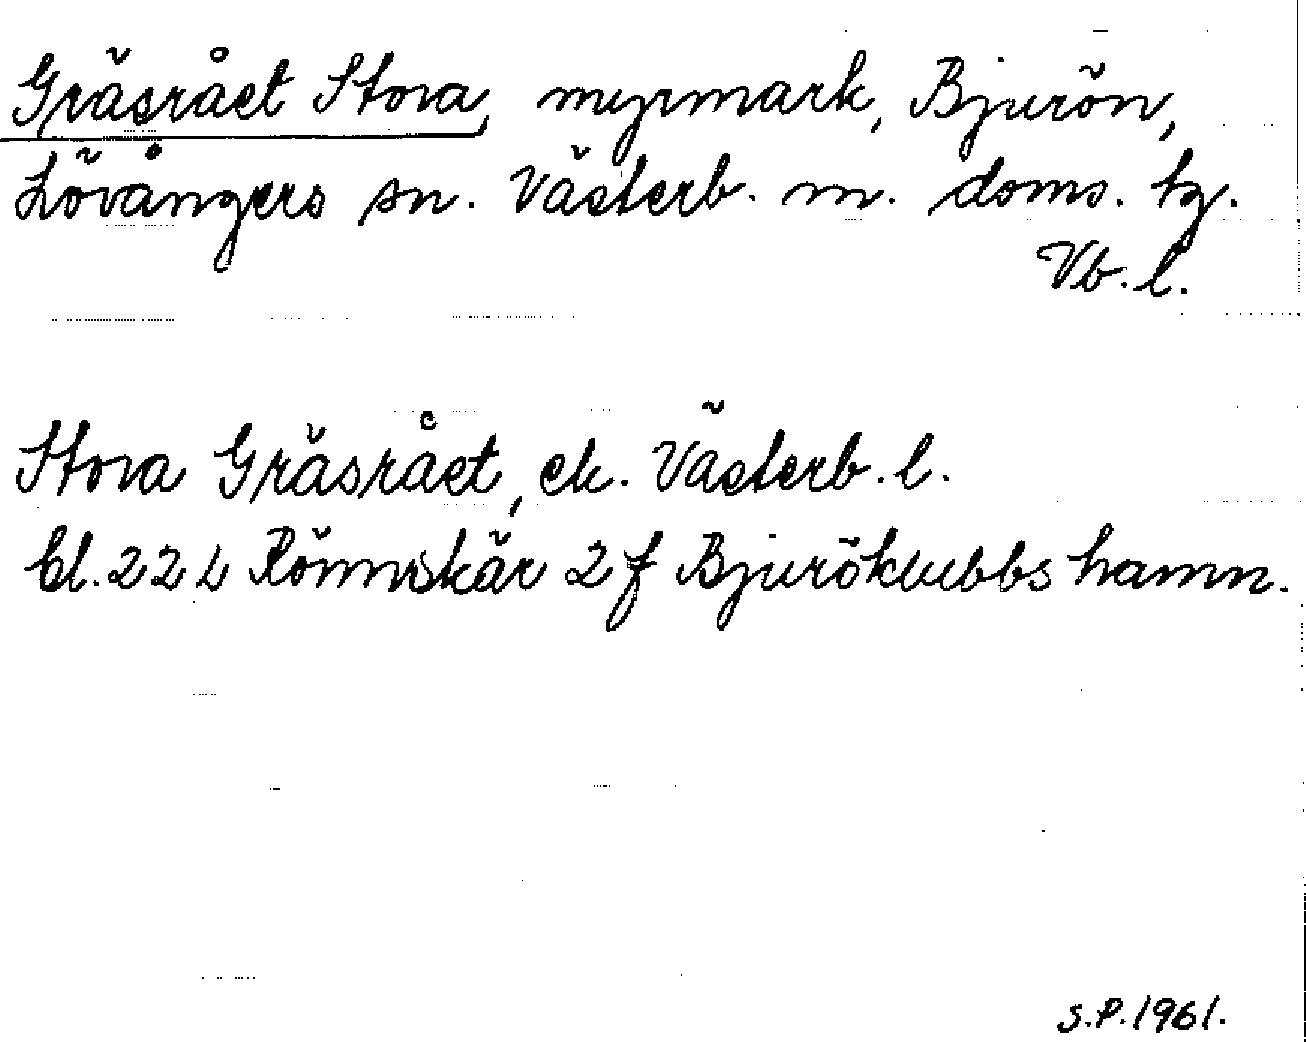 Gräsrået Stora, myrmark, Bjurön,
Lövångers sn. Västerb. m. doms. tg.
Vb. l.
Stora Gräsrået, ek. Västerb. l.
bl. 22 L Rönnskär 2 f Bjuröklubbs hamn.
S.P. 1961.